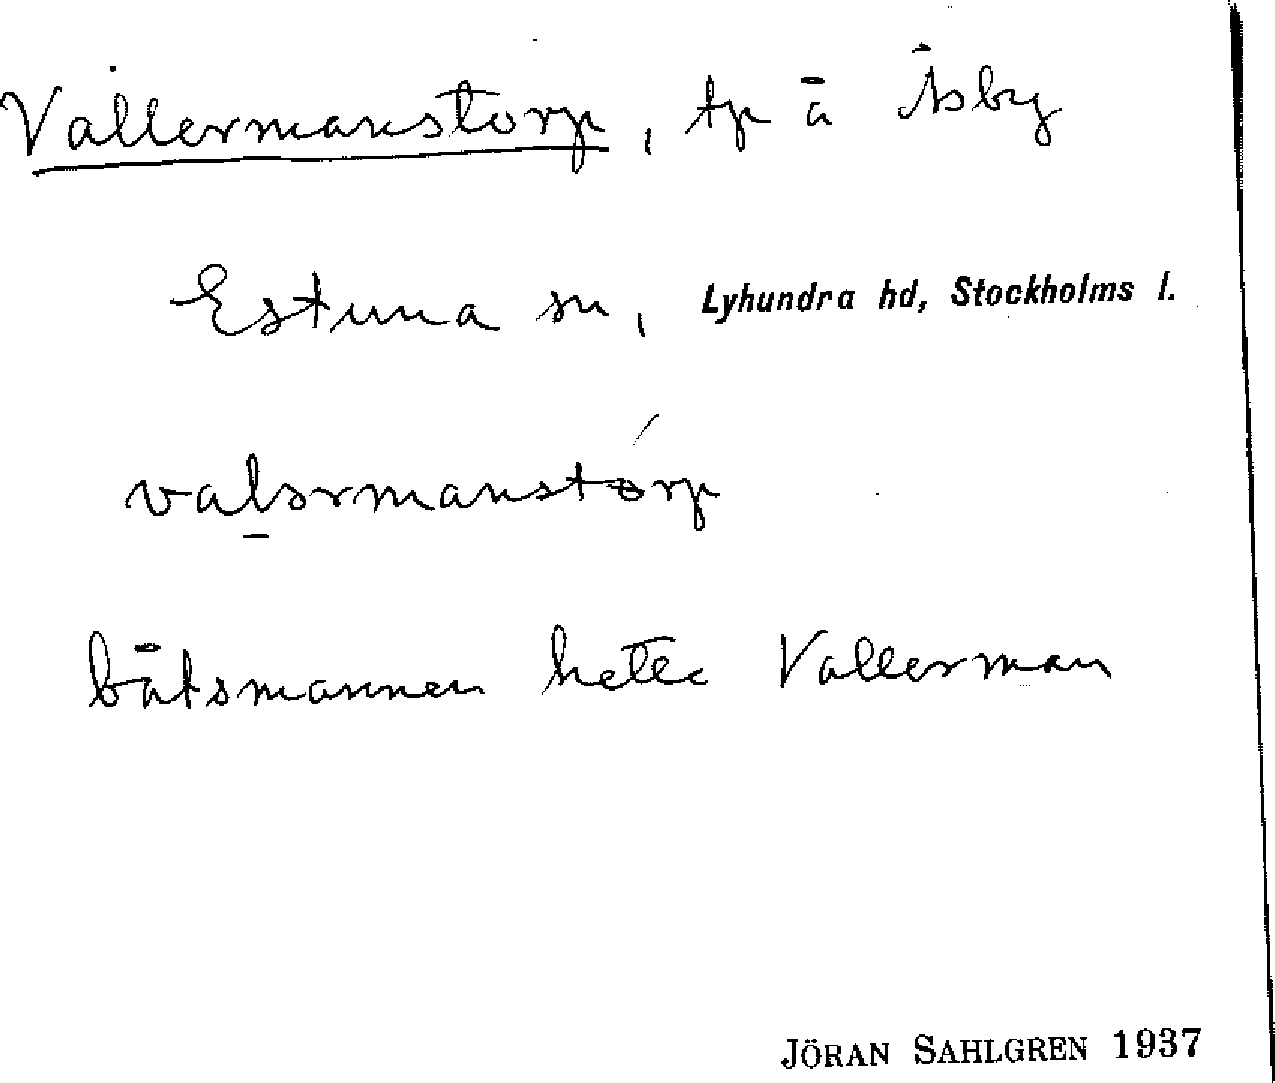 Vallermanstorp, tp å Åsby
Estuna sn, Lyhundra hd, Stockholms l.
valərmanstórp
båtsmannen hette Vallerman
JÖRAN SAHLGREN 1937